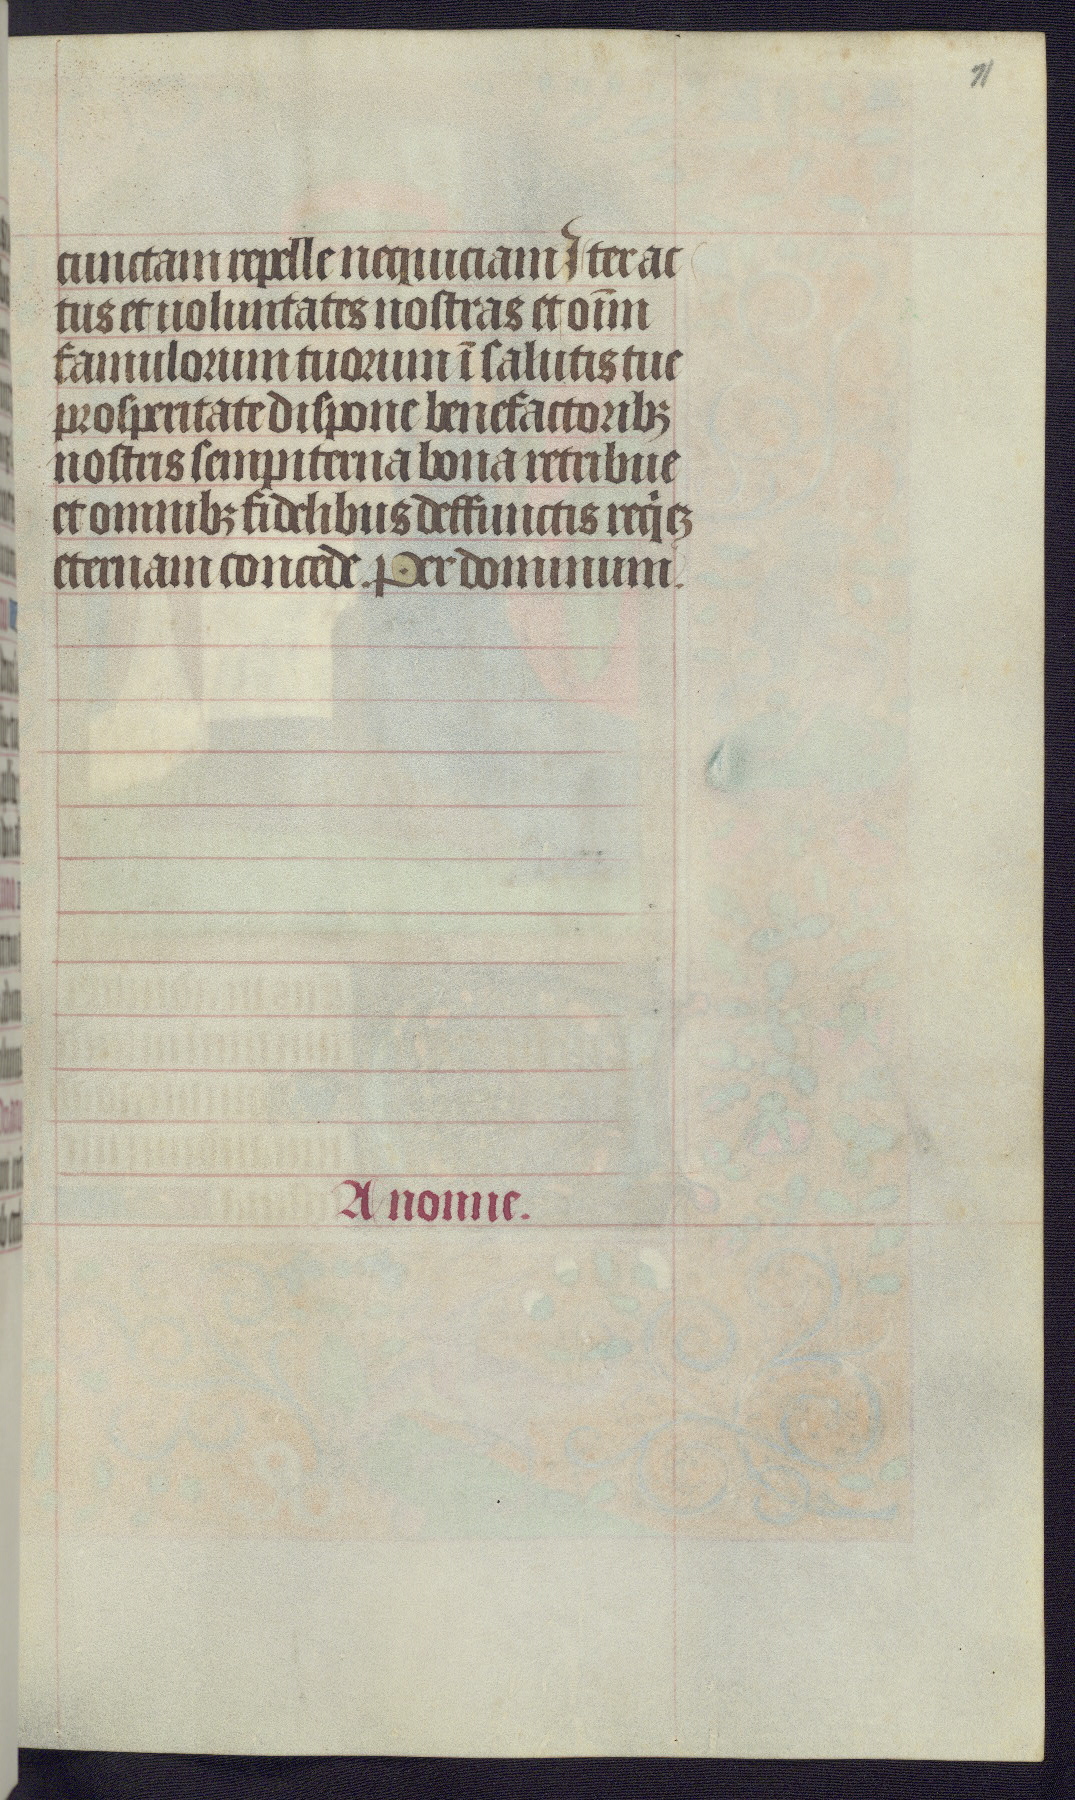 71
cunctam repelle nequiciam Iter ac
tus et uoluntates nostras et oīm
famulorum tuorum ī salutis tue
prosperitate dispone benefactoribꝫ
nostris sempiterna bona retribue
et omnibꝫ fidelibus deffunctis reqiē
eternam concede. Per dominum.
A nonne.